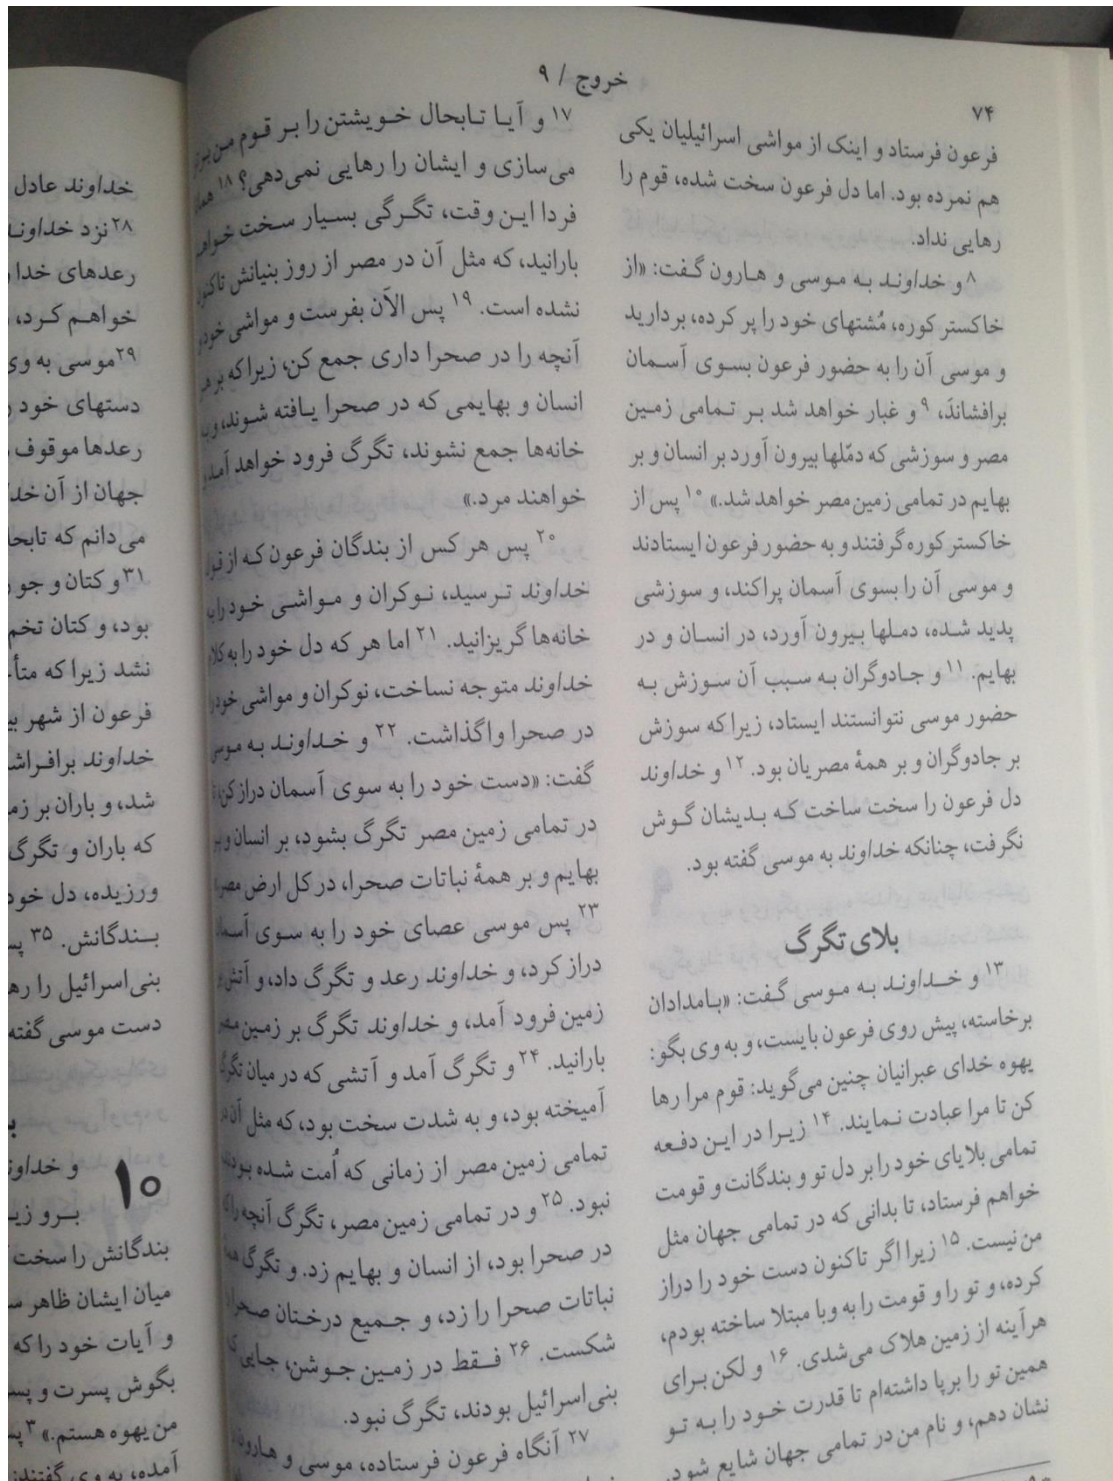 خروج / ۹
۷۴
فرعون فرستاد و اینک از مواشی اسرائیلیان یکی
هم نمرده بود. اما دل فرعون سخت شده، قوم را
رهایی نداد.
۸ و خداوند به موسی و هارون گفت: «از
خاکستر کوره، مُشتهای خود را پر کرده، بردارید
و موسی آن را به حضور فرعون بسوی آسمان
برافشاند، ۹ و غبار خواهد شد بر تمامی زمین
مصر و سوزشی که دمّلها بیرون آورد بر انسان و بر
بهایم در تمامی زمین مصر خواهد شد.» ۱۰ پس از
خاکستر کوره گرفتند و به حضور فرعون ایستادند
و موسی آن را بسوی آسمان پراکند، و سوزشی
پدید شده، دملها بیرون آورد، در انسان و در
بهایم. ۱۱ و جادوگران به سبب آن سوزش به
حضور موسی نتوانستند ایستاد، زیرا که سوزش
بر جادوگران و بر همهٔ مصریان بود. ۱۲ و خداوند
دل فرعون را سخت ساخت که بدیشان گوش
نگرفت، چنانکه خداوند به موسی گفته بود.
بلای تگرگ
۱۳ و خداوند به موسی گفت: «بامدادان
برخاسته، پیش روی فرعون بایست، و به وی بگو:
یهوه خدای عبرانیان چنین می‌گوید: قوم مرا رها
کن تا مرا عبادت نمایند. ۱۴ زیرا در این دفعه
تمامی بلایای خود را بر دل تو و بندگانت و قومت
خواهم فرستاد، تا بدانی که در تمامی جهان مثل
من نیست. ۱۵ زیرا اگر تاکنون دست خود را دراز
کرده، و تو را و قومت را به وبا مبتلا ساخته بودم،
هرآینه از زمین هلاک می‌شدی. ۱۶ و لکن برای
همین تو را برپا داشته‌ام تا قدرت خود را به تو
نشان دهم، و نام من در تمامی جهان شایع شود.
۱۷ و آیا تابحال خویشتن را بر قوم من
می‌سازی و ایشان را رهایی نمی‌دهی؟ ۱۸
فردا این وقت، تگرگی بسیار سخت
بارانید، که مثل آن در مصر از روز بنیانش تاکنون
نشده است. ۱۹ پس الآن بفرست و مواشی خود و
آنچه را در صحرا داری جمع کن، زیرا که بر هر
انسان و بهایمی که در صحرا یافته شوند، و به
خانه‌ها جمع نشوند، تگرگ فرود خواهد آمد و
خواهند مرد.»
۲۰ پس هر کس از بندگان فرعون که از
خداوند ترسید، نوکران و مواشی خود را به
خانه‌ها گریزانید. ۲۱ اما هر که دل خود را به کلام
خداوند متوجه نساخت، نوکران و مواشی خود را
در صحرا واگذاشت. ۲۲ و خداوند به موسی
گفت: «دست خود را به سوی آسمان دراز کن، تا
در تمامی زمین مصر تگرگ بشود، بر انسان و بر
بهایم و بر همهٔ نباتات صحرا، در کل ارض مصر.»
۲۳ پس موسی عصای خود را به سوی
دراز کرد، و خداوند رعد و تگرگ داد، و آتش بر
زمین فرود آمد، و خداوند تگرگ بر زمین مصر
بارانید. ۲۴ و تگرگ آمد و آتشی که در میان تگرگ
آمیخته بود، و به شدت سخت بود، که مثل آن در
تمامی زمین مصر از زمانی که اُمت شده بودند،
نبود. ۲۵ و در تمامی زمین مصر، تگرگ آنچه را که
در صحرا بود، از انسان و بهایم زد. و تگرگ
نباتات صحرا را زد، و جمیع درختان صحرا را
شکست. ۲۶ فقط در زمین جوشن، جایی که
بنی‌اسرائیل بودند، تگرگ نبود.
۲۷ آنگاه فرعون فرستاده، موسی و هارون
خداوند عادل
۲۸ نزد خداوند
رعدهای خدا
خواهم کرد،
۲۹ موسی به وی
دستهای خود
رعدها موقوف
جهان از آن
می‌دانم که
۳۱ و کتان و جو
بود، و کتان تخم
نشد زیرا که
فرعون از شهر
خداوند
شد، و باران بر
که باران و تگرگ
ورزیده، دل
بندگانش. ۳۵
بنی‌اسرائیل را
دست موسی گفته
۱۰
و
برو
بندگانش را سخت
میان ایشان ظاهر
و آیات خود را که
بگوش پسرت و
من یهوه هستم.» ۳
آمده، به وی گفتند: